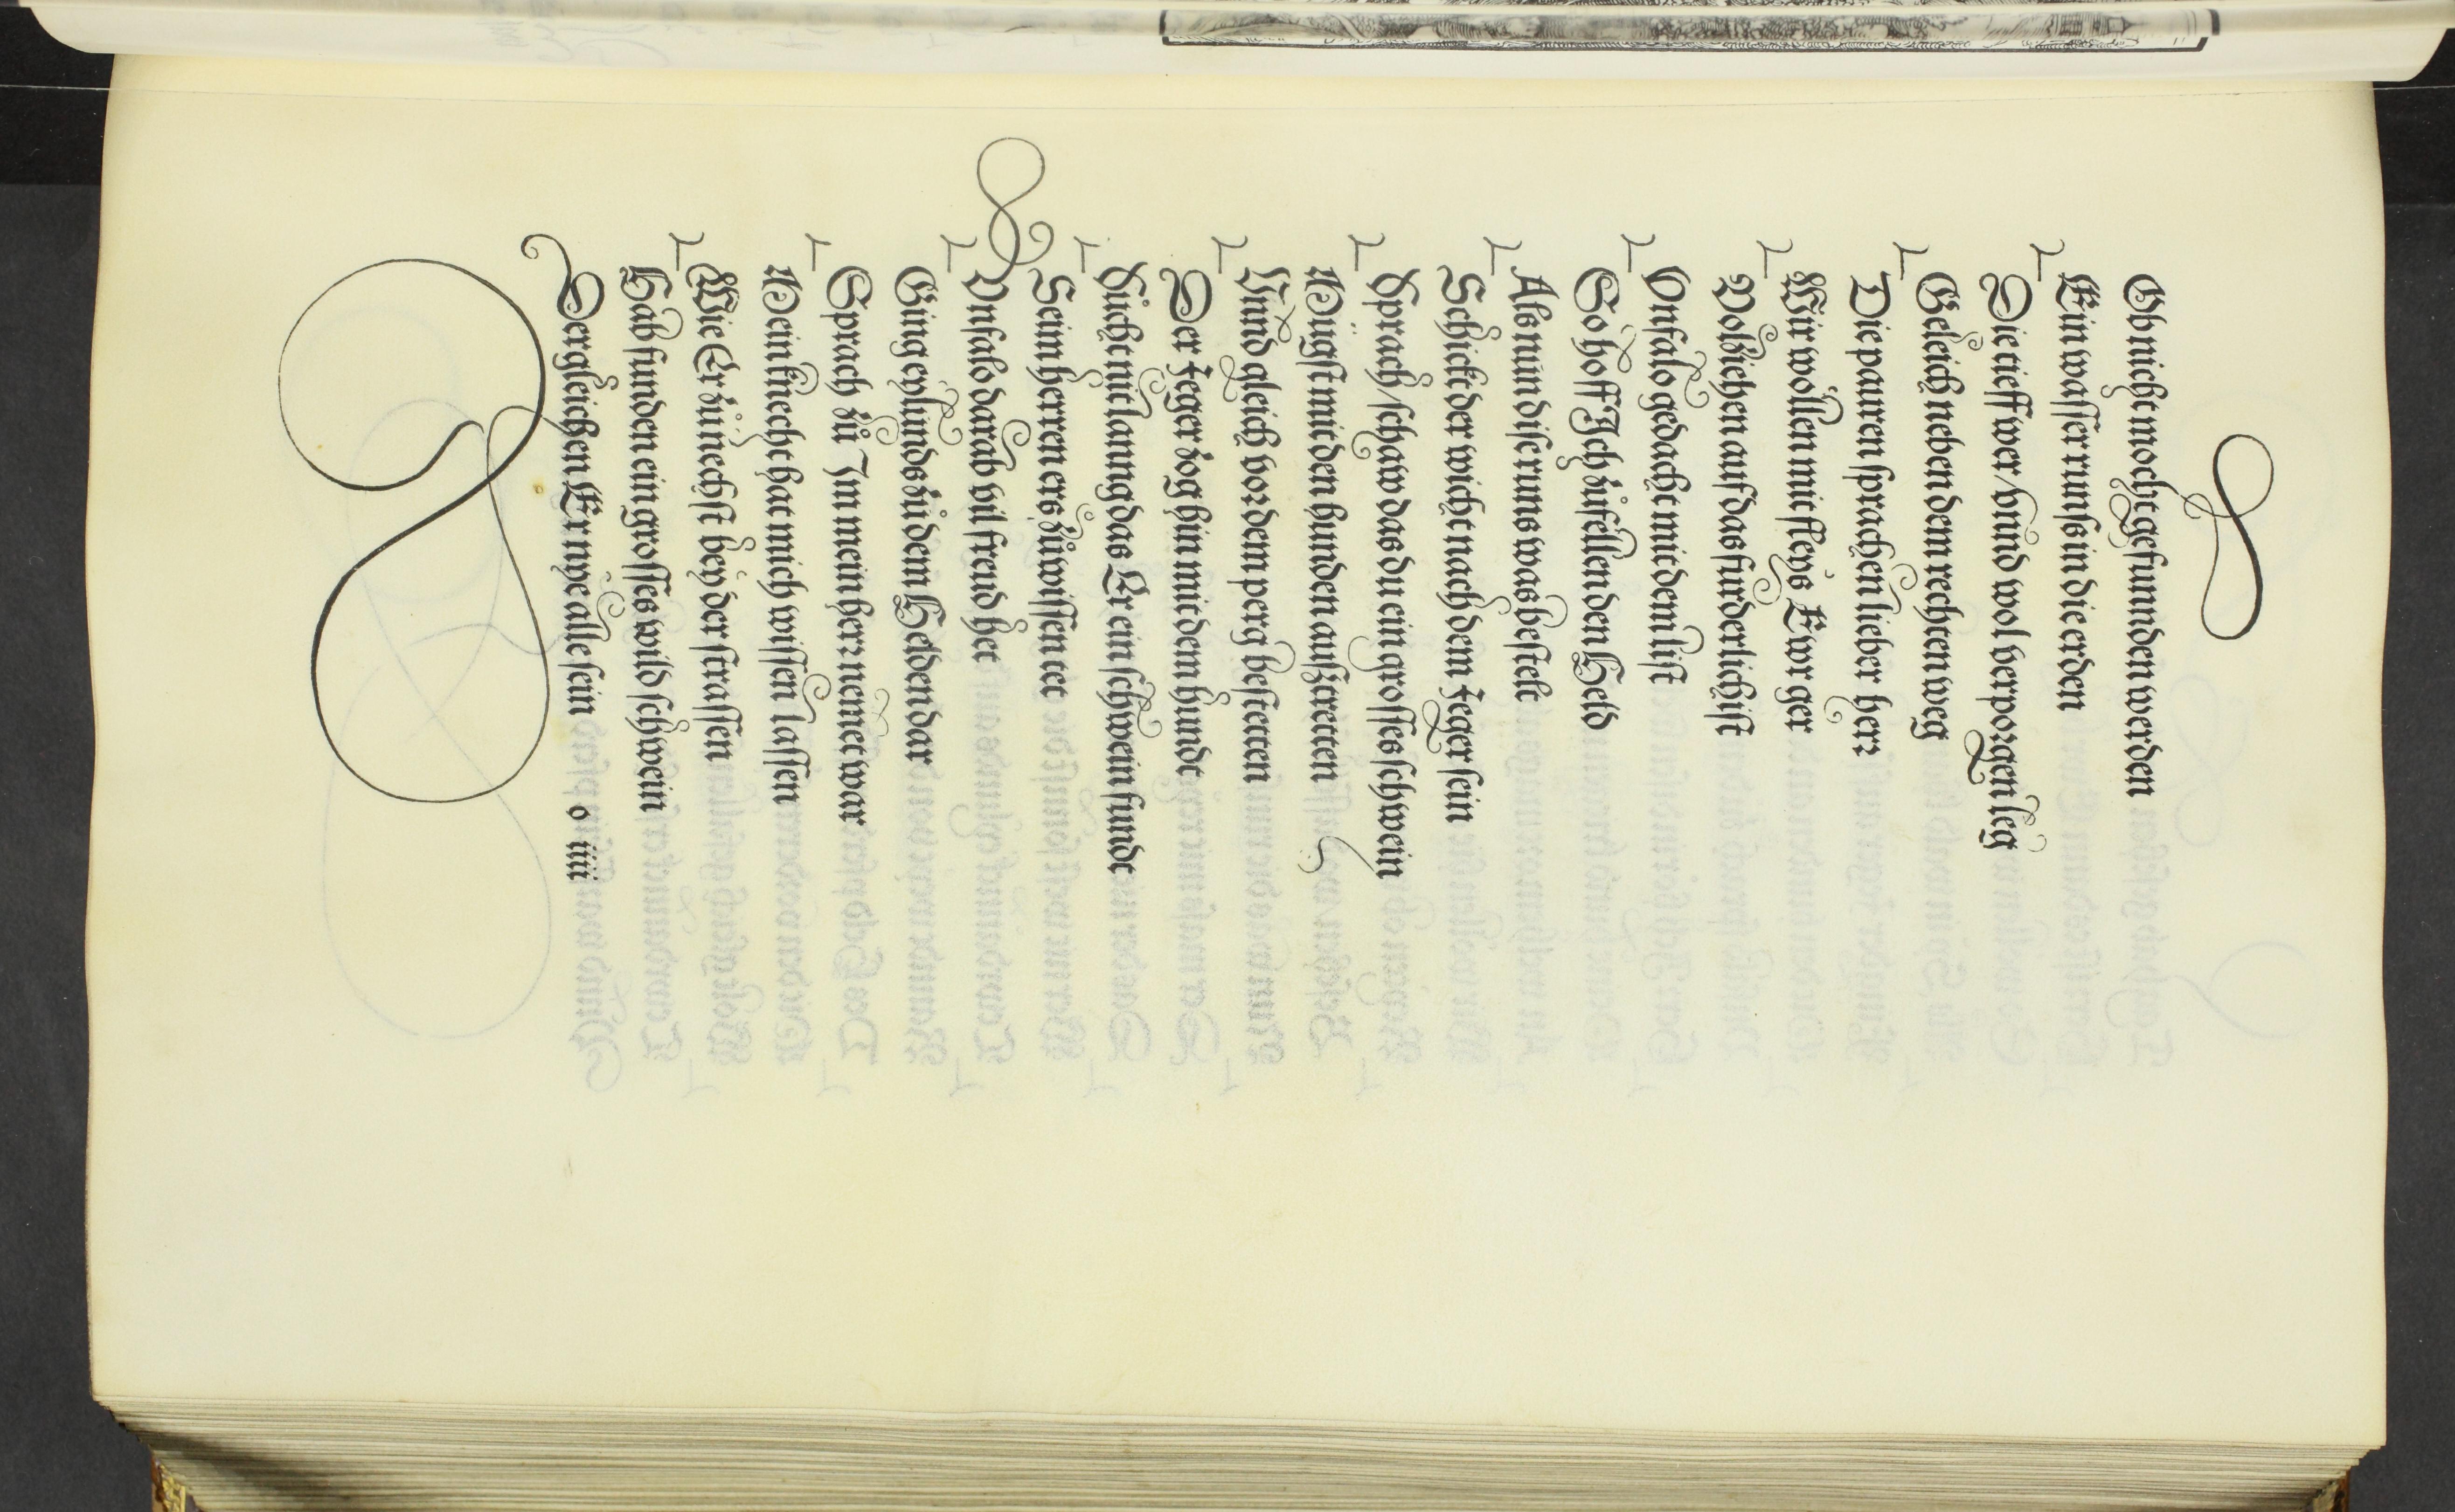 Ob nicht mocht gefunnden werden
Ein wasser runsß in die erden
Die tieff wer/ vnnd wol verporgen leg
Geleich neben dem rechten weg
Die pauren sprachen lieber herr
Wir wöllen mit fleyß Ewr ger
Volziehen auf das furderlichist
Vnfalo gedacht mit dem list
So hoff Ich zůfellen den Held
Als nůn diser runs was bestelt
Schickt der wicht nach dem Jeger sein
Sprach/ schaw das du ein grosses schwein
Mügst mit dem hunden außtretten
Vnnd gleich vor dem perg bestetten
Der Jeger zog hin mit dem hundt
Sůcht mit lanng das Er ein schwein fundt
Seim herren ers zůwissen tet
Vnfalo darab vil freud het
Ging eylunds zů dem Helden dar
Sprach zů Im mein herr nemet war
Mein knecht hat mich wissen lassen
Wie Er zů nechst bey der strassen
Hab funden ein grosses wild schwein
Dergleichen Er nye alle sein
o iiii